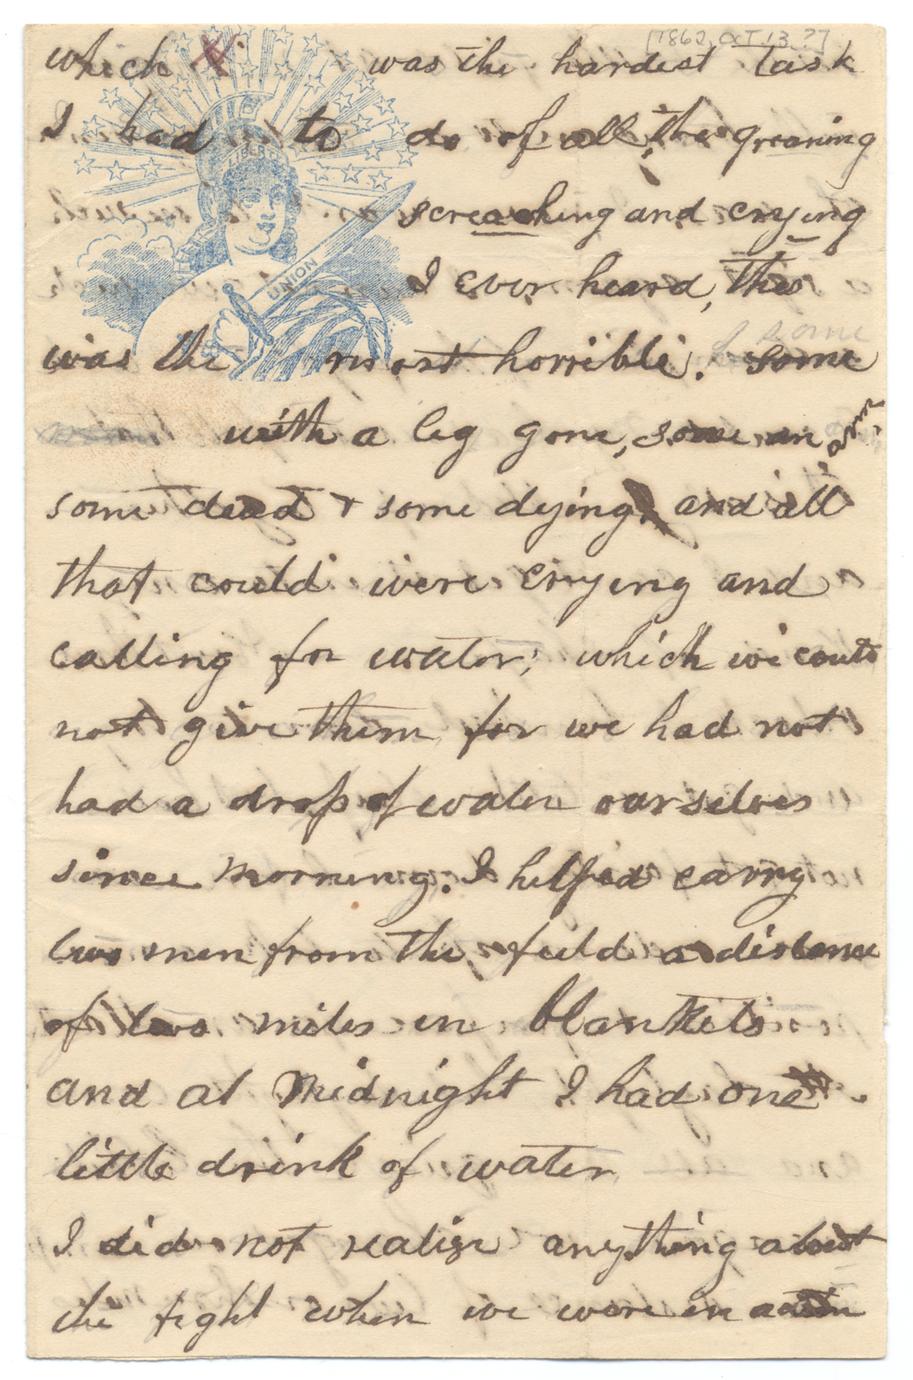 [1862, OCT 13 ?]
which was the hardest task
I had to do of all, the groaning
LIBERTY
screaching and crying
UNION
I ever heard, this
was the most horrible. Some
some
with a leg gone, some an arm,
some dead & some dying, and all
that could were crying and
calling for water; which we could
not give them for we had not
had a drop of water ourselves
since morning. I helped carry
two men from the feild a distance
of two miles in blankets
and at Midnight I had one
little drink of water
I did not realize anything about
the fight when we were in action